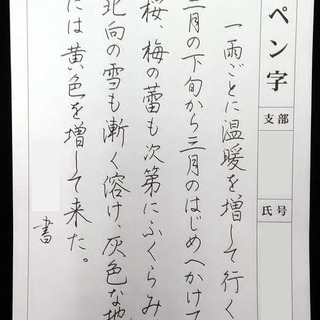 ペン字
支部
氏号
一雨ごとに温暖を増して行く
二月の下旬から三月のはじめへかけて
桜、梅の蕾も次第にふくらみ
北向の雪も漸く溶け、灰色な地
には黄色を増して来た。
書